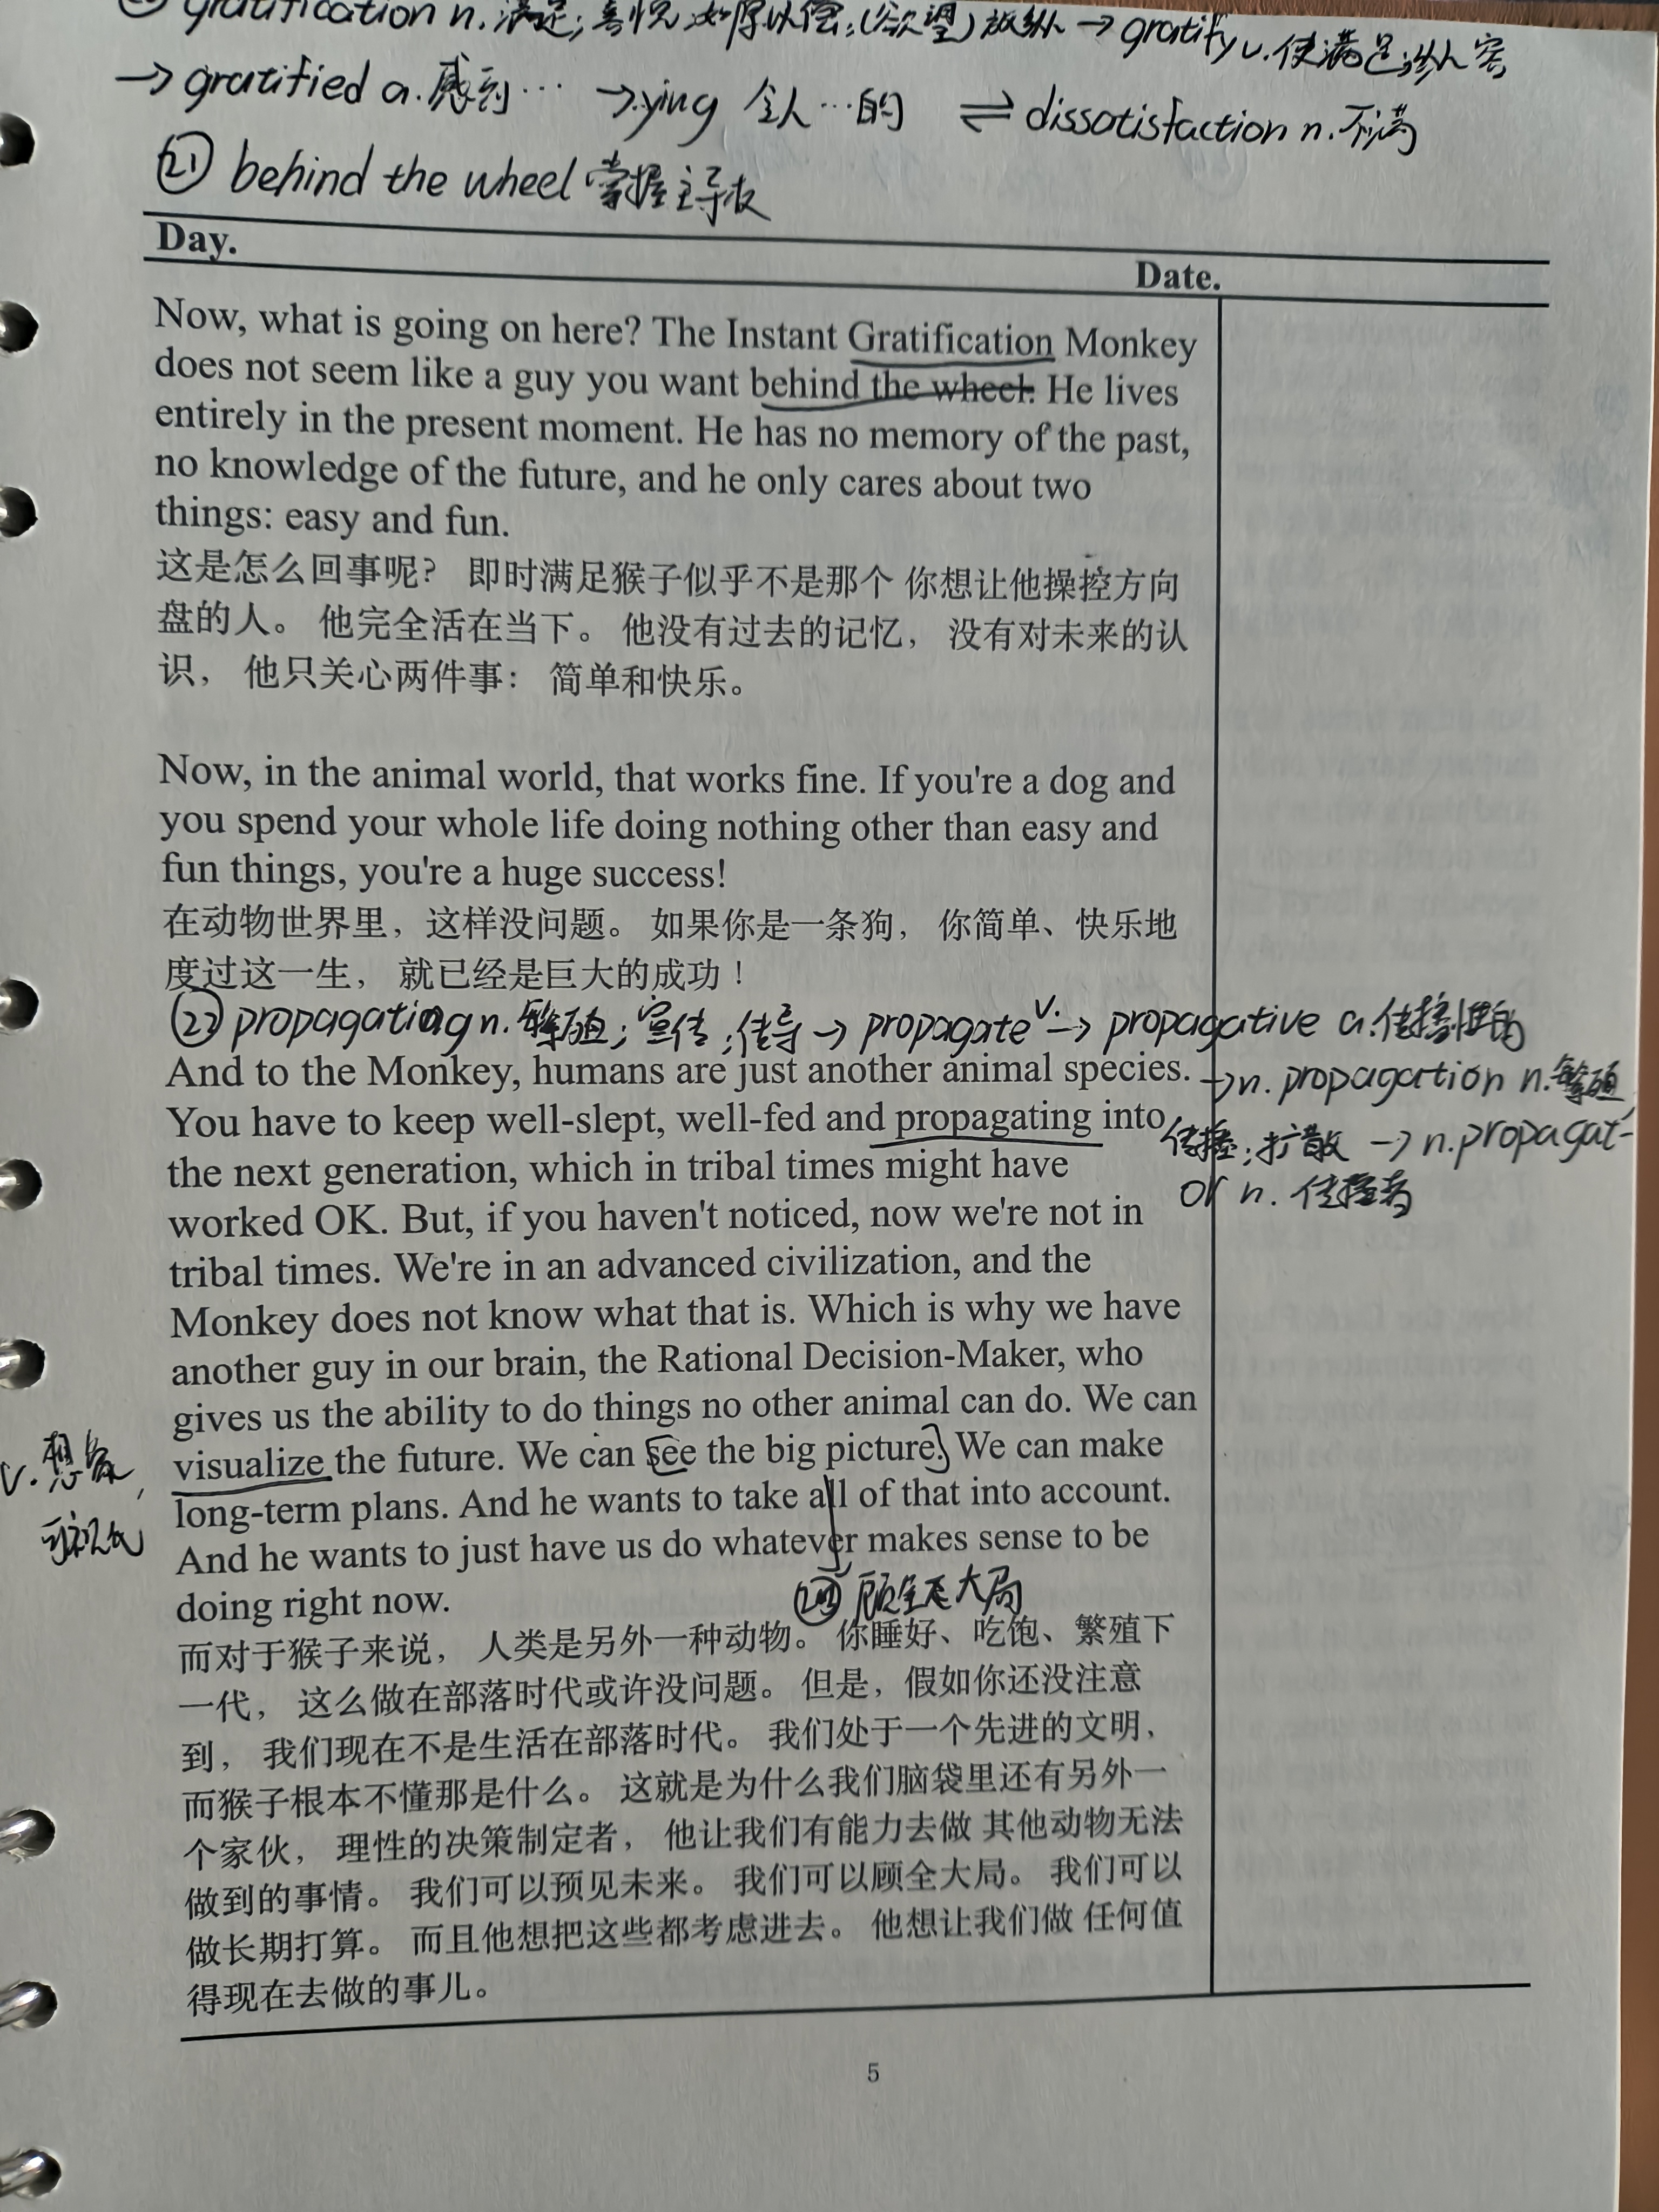 gratification n.满足;喜悦;如愿以偿;(欲望)放纵→gratify v.使满足;纵容
→gratified a.感到… →ying 令人…的 ⇌dissatisfaction n.不满
㉑ behind the wheel 掌握主导权
Day.
Date.
Now, what is going on here? The Instant Gratification Monkey
does not seem like a guy you want behind the wheel. He lives
entirely in the present moment. He has no memory of the past,
no knowledge of the future, and he only cares about two
things: easy and fun.
这是怎么回事呢? 即时满足猴子似乎不是那个 你想让他操控方向
盘的人。 他完全活在当下。 他没有过去的记忆, 没有对未来的认
识, 他只关心两件事: 简单和快乐。
Now, in the animal world, that works fine. If you're a dog and
you spend your whole life doing nothing other than easy and
fun things, you're a huge success!
在动物世界里, 这样没问题。 如果你是一条狗, 你简单、快乐地
度过这一生, 就已经是巨大的成功!
propagating n.繁殖;宣传;传导→propagate v.→propagative a.传播性的
And to the Monkey, humans are just another animal species.
→n.propagation n.繁殖,
You have to keep well-slept, well-fed and propagating into
传播;扩散→n.propagat-
the next generation, which in tribal times might have
or n.传播者
worked OK. But, if you haven't noticed, now we're not in
tribal times. We're in an advanced civilization, and the
Monkey does not know what that is. Which is why we have
another guy in our brain, the Rational Decision-Maker, who
gives us the ability to do things no other animal can do. We can
v.想象,
visualize the future. We can [see the big picture.] We can make
long-term plans. And he wants to take all of that into account.
可视化
And he wants to just have us do whatever makes sense to be
doing right now.
顾全大局
而对于猴子来说, 人类是另外一种动物。 你睡好、吃饱、繁殖下
一代, 这么做在部落时代或许没问题。 但是, 假如你还没注意
到, 我们现在不是生活在部落时代。 我们处于一个先进的文明,
而猴子根本不懂那是什么。 这就是为什么我们脑袋里还有另外一
个家伙, 理性的决策制定者, 他让我们有能力去做 其他动物无法
做到的事情。 我们可以预见未来。 我们可以顾全大局。 我们可以
做长期打算。 而且他想把这些都考虑进去。 他想让我们做 任何值
得现在去做的事儿。
5